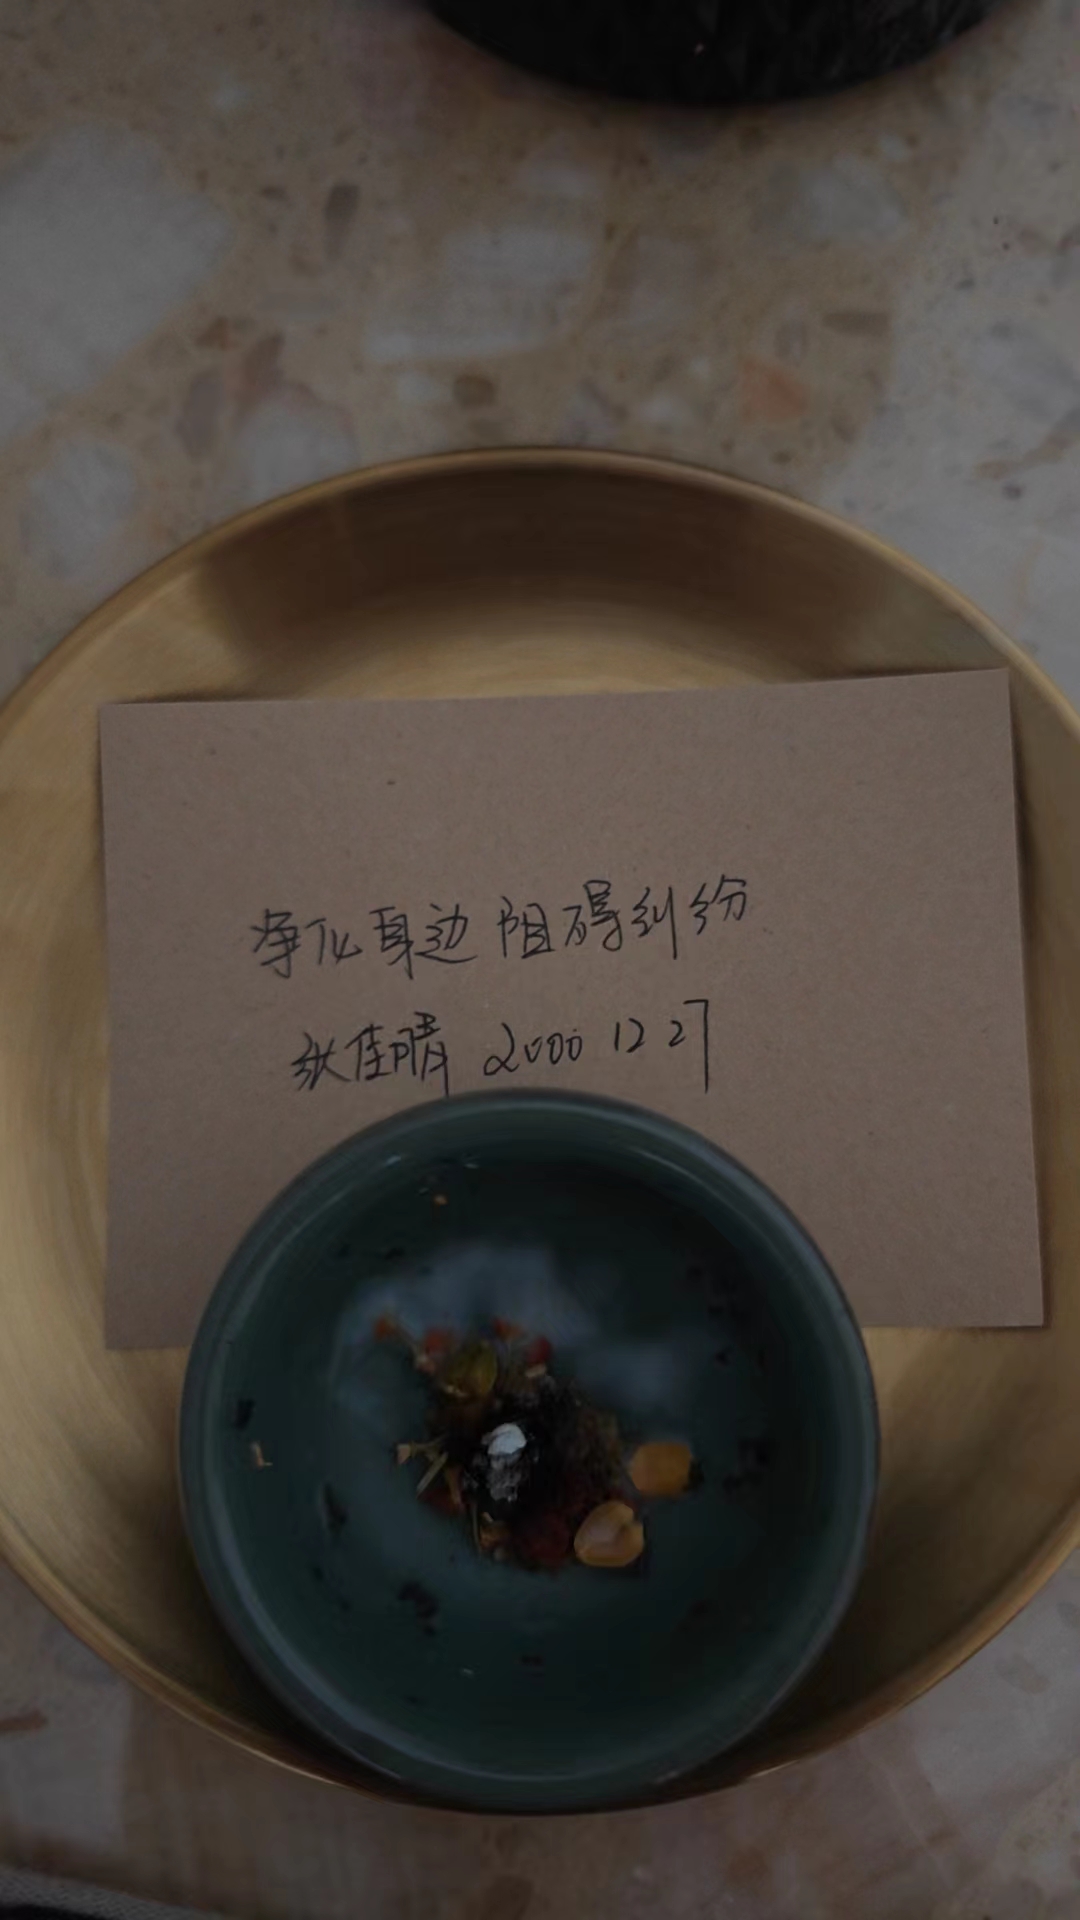 净化身边阻碍纠纷
张佳晴 2000 12 27